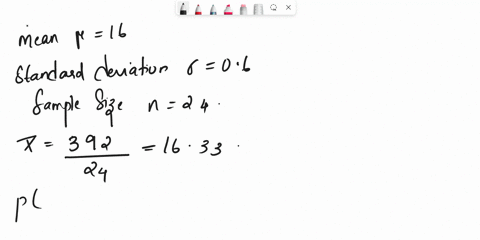 mean μ = 16
Standard deviation σ = 0.6
Sample Size n = 24.
x̄ = 392/24 = 16.33.
p(